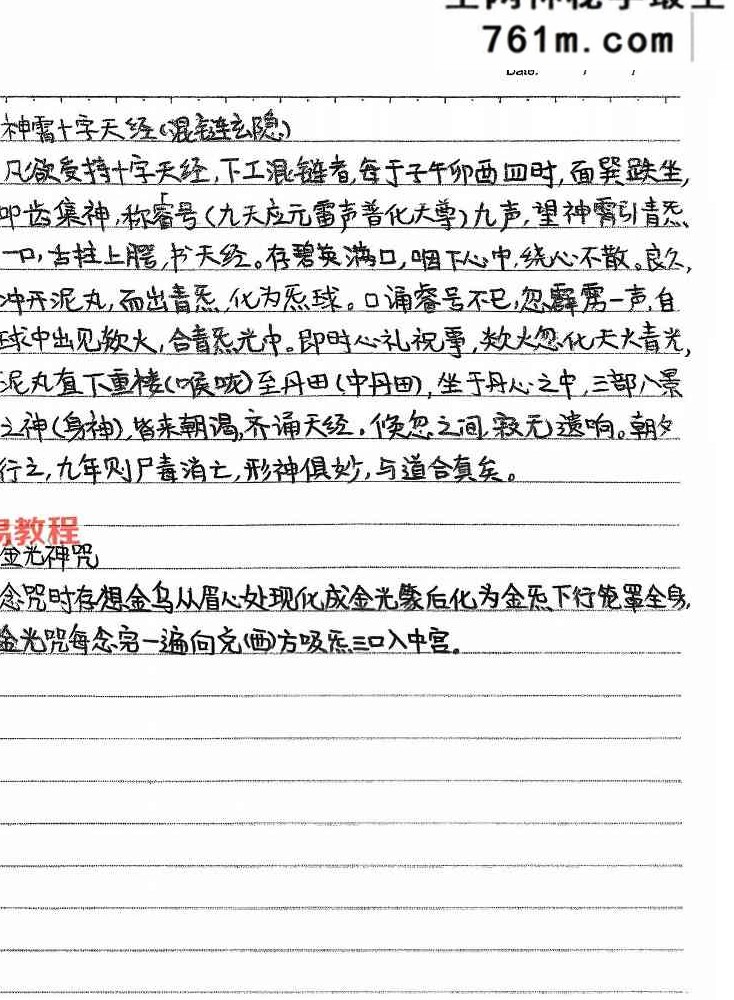 761m.com
Date: / /
神霄十字天经(混链玄隐)
凡欲受持十字天经,下工混链者,每于子午卯酉四时,面巽趺坐,
叩齿集神,称睿号(九天应元雷声普化天尊)九声,望神霄引青炁、
一口,舌拄上腭,书天经。存碧英满口,咽下心中,绕心不散。良久,
冲开泥丸,而出青炁,化为炁球。口诵睿号不已,忽霹雳一声,自
球中出见欻火,合青炁光中。即时心礼祝事,欻火忽化天大青光,
泥丸直下重楼(喉咙)至丹田(中丹田),坐于丹心之中,三部八景
之神(身神),皆来朝谒,齐诵天经。倏忽之间,寂无遗响。朝夕
行之,九年则尸毒消亡,形神俱妙,与道合真矣。
易教程
金光神咒
念咒时存想金乌从眉心处现化成金光象后化为金炁下行笼罩全身,
金光咒每念完一遍向兑(西)方吸炁三口入中宫。